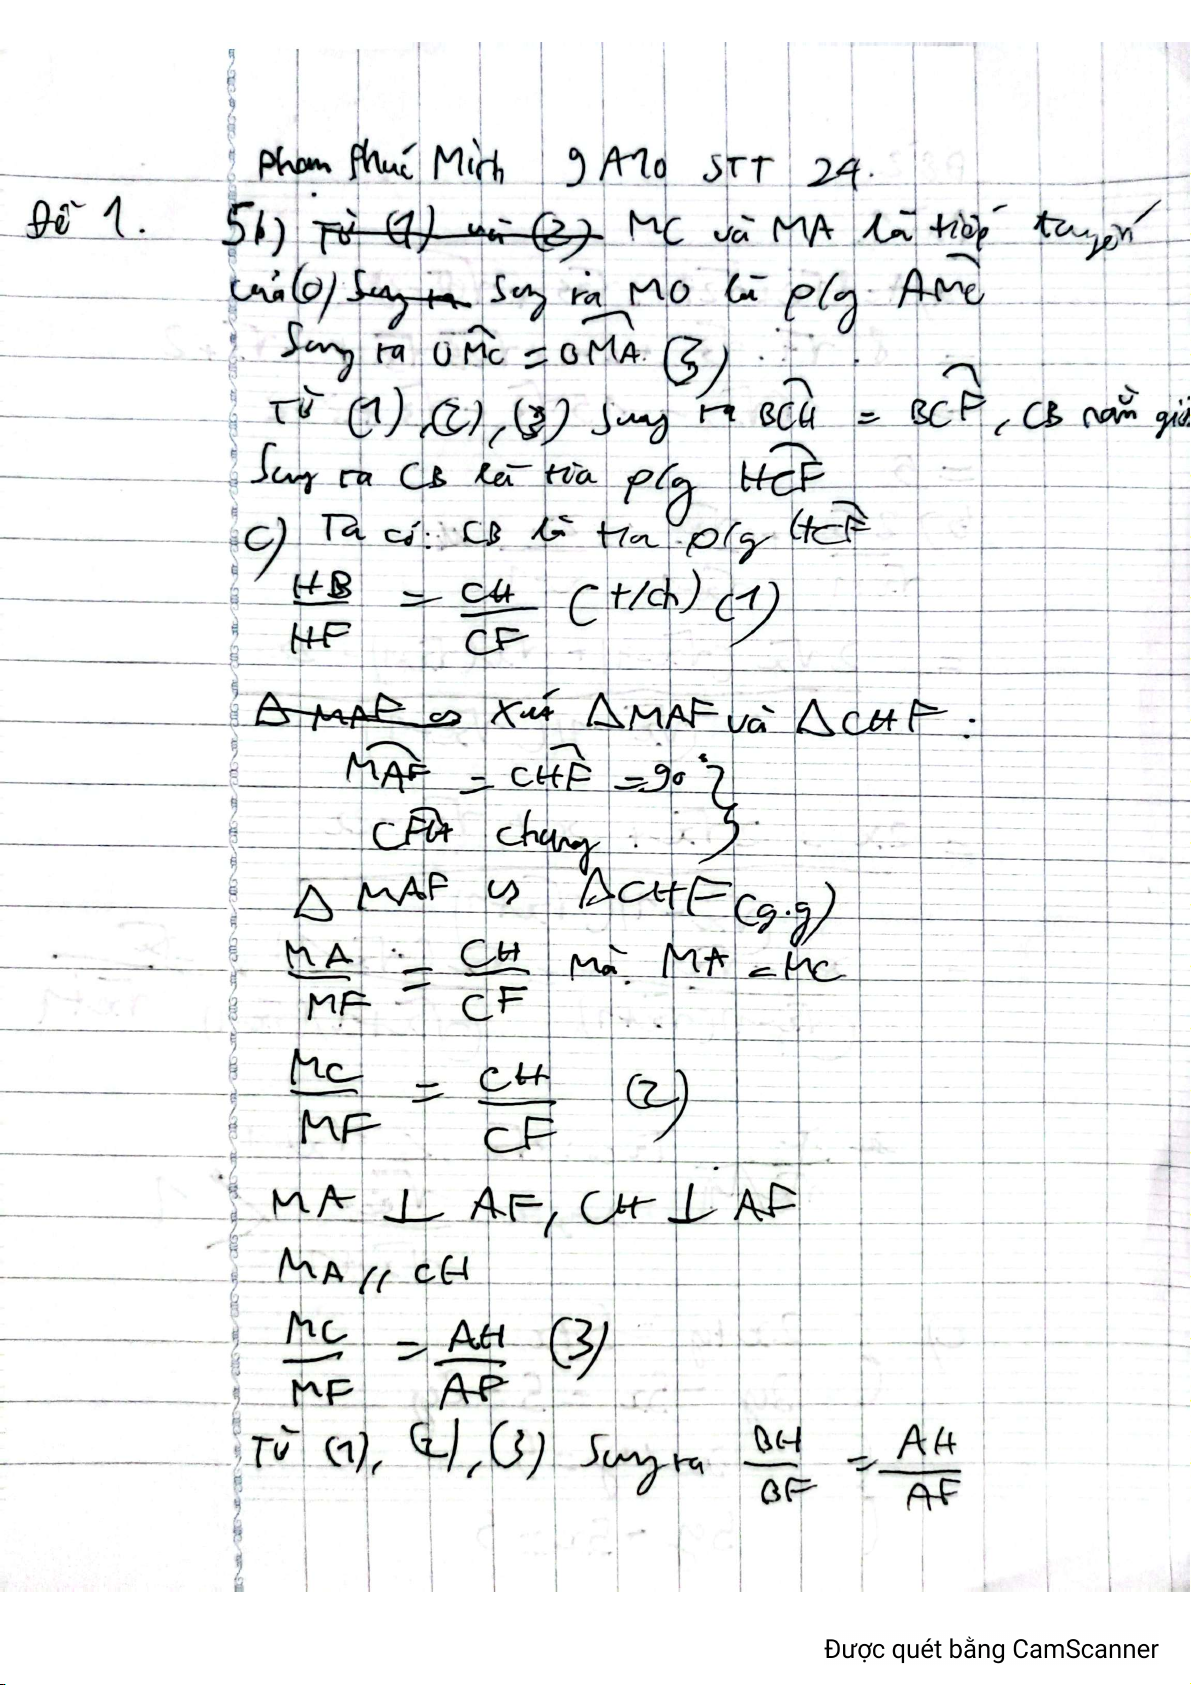 Phạm Phúc Minh 9A10 STT 24.
Đề 1. 5b) Từ (1) và (2) MC và MA là tiếp tuyến
của (O) Suy ra Suy ra MO là p/g AMC
Suy ra OMC = OMA. (3)
Từ (1), (2), (3) Suy ra BCH = BCF, CB nằm giữa
Suy ra CB là tia p/g HCF
c) Ta có: CB là tia p/g HCF
HB/HF = CH/CF (t/ch) (1)
Δ MAF ∽ Xét ΔMAF và ΔCHF:
MAF = CHF = 90° }
CFH chung. }
Δ MAF ∽ ΔCHF (g.g)
MA/MF = CH/CF mà MA = MC
MC/MF = CH/CF (2)
MA ⊥ AF, CH ⊥ AF
MA // CH
MC/MF = AH/AF (3)
Từ (1), (2), (3) Suy ra BH/BF = AH/AF
Được quét bằng CamScanner